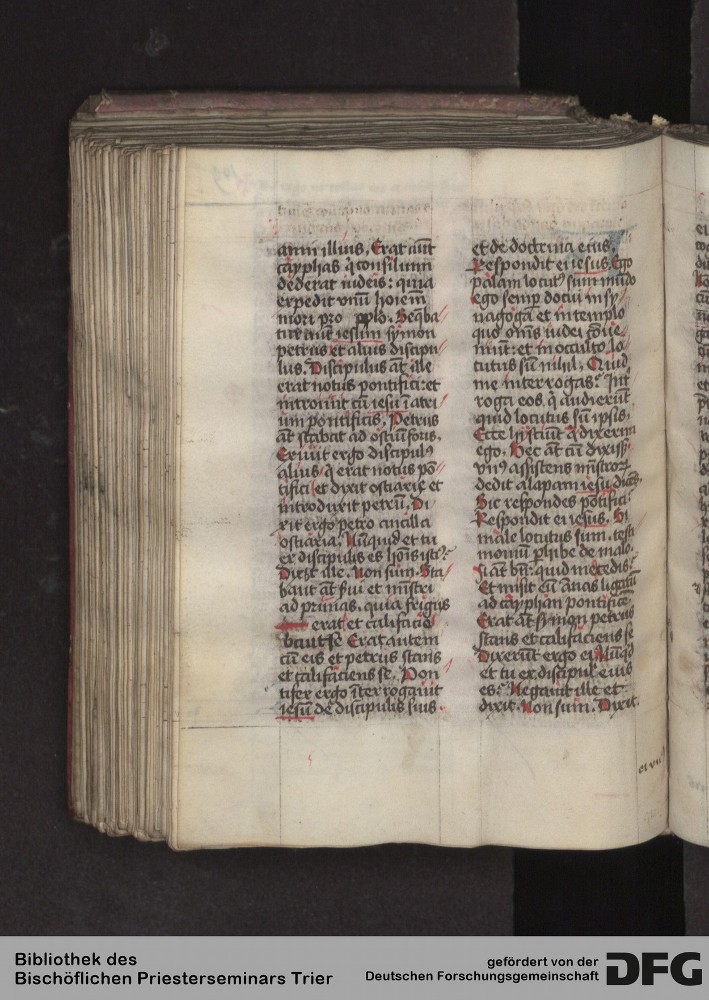 anni illius. Erat aūt
cayphas q̄ consilium
dederat iudeis: quia
expedit vnū hoīem
mori pro pplo. Seq̄ba
tur aūt iesum symon
petrus et alius discipu
lus. Discipulus āt ille
erat notus pontifici: et
introiuit cū iesu ī atri
um pontificis. Petrus
āt stabat ad ostiū foris.
Exiuit ergo discipulꝰ
alius q̄ erat notus pō
tifici et dixit ostiarie et
introduxit petrū. Di
xit ergo petro ancilla
ostiaria. Nūquid et tu
ex discipulis es hoīs istiꝰ?
Dicit ille. Non sum. Sta
bant āt s̄ui et mīstri
ad prunas, quia frigus
erat et calefacie
bant se Erat autem
cū eis et petrus stans
et califaciens se. Pon
tifex ergo īterrogauit
iesū de discipulis suis.
et de doctrina eius.
Respondit ei iesus. Ego
palam locutꝰ sum mūdo
ego semꝑ docui in sy
nagoga et in templo
quo om̄s iudei cōue
niūt: et in occulto lo
cutus sū nihil. Quid
me interrogas? Int̄
roga eos q̄ audierūt
quid locutus sū ipsis.
Ecce hij sciūt q̄ dixerim
ego. Hec āt cū dixiss̄
vnꝰ assistens mīstroꝝ
dedit alapam iesu dices̄
Sic respondes pōtifici?
Respondit ei iesus. Si
male locutus sum. testi
moniū ꝑhibe de malo.
si āt bn̄: quid me cedis?
Et misit eū Annas ligatū
ad caypham pontificē
Erat āt symon petrus
stans et califaciens se
Dixerūt ergo ei Nūqd
et tu ex discipul' eius
es? Negauit ille et
dixit. Non sum. Dixit
ei vnꝰ
Bibliothek des
Bischöflichen Priesterseminars Trier
gefördert von der
Deutschen Forschungsgemeinschaft
DFG